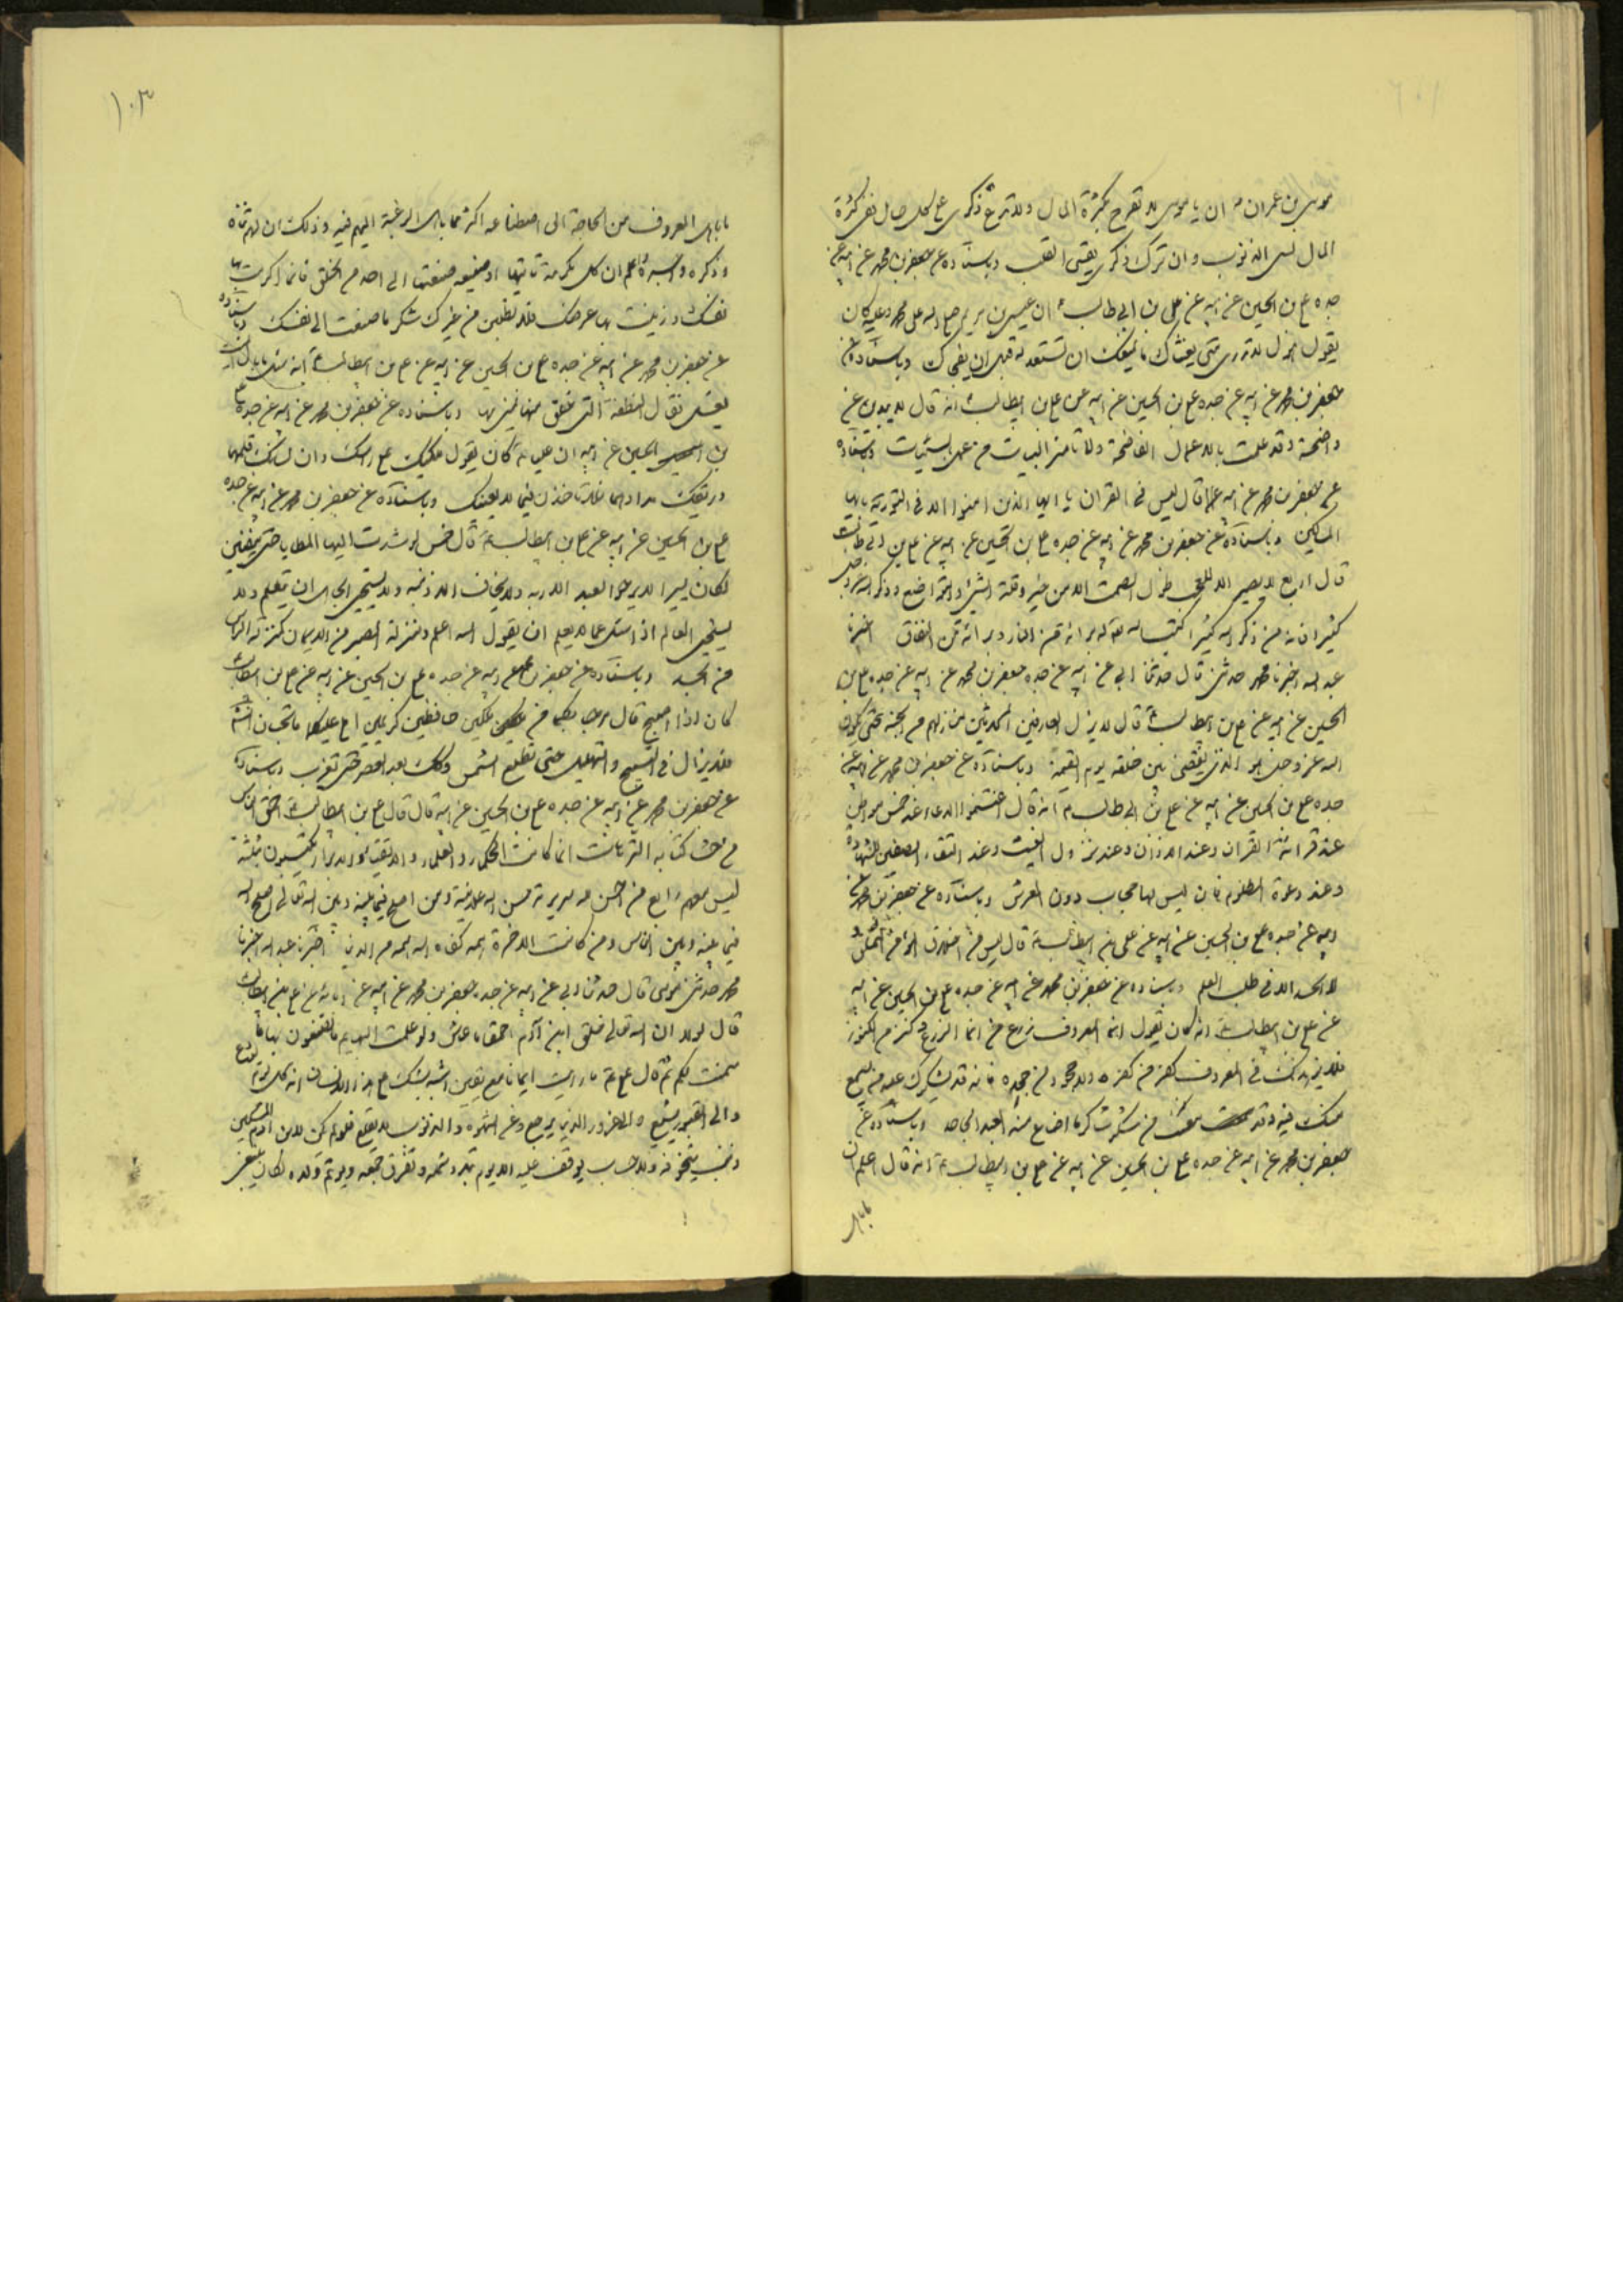 موسى بن عمران ع ان يا موسى لا تفرح بكثرة المال ولا تدع ذكرى على كل حال فان كثرة
المال تنسى الذنوب وان ترك ذكرى يقسى القلب وباسناده عن جعفر بن محمد عن ابيه عن
جده على بن الحسين عن ابيه عن على بن ابى طالب ع ان عيسى بن مريم كان
يقول هول لا تدرى متى يغشاك ما يمنعك ان تستعد له قبل ان يفجأك وباسناده عن
جعفر بن محمد عن ابيه عن جده على بن الحسين عن ابيه عن على بن ابيطالب ع انه قال لا تبدين عن
واضحة وقد عملت بالاعمال الفاضحة ولا تامن البيات من عمل السيئات وباسناده
عن جعفر بن محمد عن ابيه قال ليس فى القران يا ايها الذين امنوا الا فى التورية يا ايها
المساكين وباسناده عن جعفر بن محمد عن ابيه عن جده على بن الحسين عن ابيه عن على بن ابى طالب
قال اربع لا يصيبهن الا بعجب طول الصمت الا من خير وقلة الشئ والتواضع وذكر الله عز وجل
كثيرا فانه من ذكر الله كثيرا كتب الله له براءة من النار وبراءة من النفاق اخبرنا
عبد الله اخبرنا محمد حدثنى قال حدثنا ابى عن ابيه عن جده جعفر بن محمد عن ابيه عن جده على بن
الحسين عن ابيه عن على بن ابيطالب ع قال لا ينزل العارفين المحدثين منازلهم من الجنة حتى يكون
الله عز وجل هو الذى يقضى بين خلقه يوم القيمة وباسناده عن جعفر بن محمد عن ابيه عن
جده على بن الحسين عن ابيه عن على بن ابى طالب ع انه قال اغتنموا الدعاء عند خمس مواطن
عند قرائة القران وعند الاذان وعند نزول الغيث وعند التقاء الصفين للشهادة
وعند دعوة المظلوم فان ليس لها حجاب دون العرش وباسناده عن جعفر بن محمد عن
ابيه عن جده على بن الحسين عن ابيه عن على بن ابيطالب ع قال ليس من اخلاق المؤمن التملق و
لا الحسد الا فى طلب العلم وباسناده عن جعفر بن محمد عن ابيه عن جده على بن الحسين عن ابيه
عن على بن ابيطالب ع انه كان يقول انما المعروف زرع من انما الزرع وكنز من الكنوز
فلا يزهدنك فى المعروف كفر من كفره ولا جحود من جحده فانه قد يشكرك عليه من يسمع
منك فيه وقد من شكر شاكر ما اضاع منه العبد الجاحد وباسناده عن
جعفر بن محمد عن ابيه عن جده على بن الحسين عن ابيه عن على بن ابيطالب ع انه قال اعلم ان
ما باهل
١٠٣
ما باهل المعروف من الحاجة الى اصطناعه اكثر مما باهل الرغبة اليهم فيه وذلك ان لهم ثناءه
وذكره واجره واعلم ان كل مكرمة تاتيها او صنيعة صنعتها الى احد من الخلق فانما اكرمت بها
نفسك وزينت بها عرضك فلا تطلبن من غيرك شكر ما صنعت الى نفسك وباسناده
عن جعفر بن محمد عن ابيه عن جده على بن الحسين عن ابيه عن على بن ابيطالب ع انه سئل ما بال الميت
يغسل فقال النطفة التى خلق منها يمنى بها وباسناده عن جعفر بن محمد عن ابيه عن جده على
بن الحسين عن ابيه ان عليا ع كان يقول ملكيك على راسك وان لسانك قلمهما
وريقك مدادهما فلا تاخذن فيما لا يعنيك وباسناده عن جعفر بن محمد عن ابيه عن جده
على بن الحسين عن ابيه عن على بن ابيطالب ع قال خمس لو شدت اليها المطايا حتى ينضين
لكان يسيرا لا يرجو العبد الا ربه ولا يخاف الا ذنبه ولا يستحيى الجاهل ان يتعلم ولا
يستحيى العالم اذا سئل عما لا يعلم ان يقول الله اعلم ومنزلة الصبر من الايمان كمنزلة الراس
من الجسد وباسناده عن جعفر بن محمد عن ابيه عن جده على بن الحسين عن ابيه عن على بن ابيطالب
كان اذا اصبح قال مرحبا بكما من ملكين حافظين كريمين املى عليكما ما تحبان انشاء
فلا يزال فى التسبيح والتهليل حتى تطلع الشمس وكذلك بعد العصر حتى تغرب وباسناده
عن جعفر بن محمد عن ابيه عن جده على بن الحسين عن ابيه قال قال على بن ابيطالب ع
كانت الحكماء والعلماء والاتقياء والابرار يكتبون بثلثة
ليس معهن رابع من احسن لله سريرته حسن الله علانيته ومن اصلح فيما بينه وبين الله تعالى اصلح الله
فيما بينه وبين الناس ومن كانت الاخرة همه كفاه الله همه من الدنيا اخبرنا عبد الله اخبرنا
محمد حدثنى موسى قال حدثنا ابى عن ابيه عن جده جعفر بن محمد عن ابيه عن ابائه عن على بن ابيطالب
قال لولا ان الله تعالى خلق ابن آدم احمق ما عاش ولو علمت البهايم ما تعلمون بها ما
سمنت لكم ثم قال على ع ما رايت ايمانا مع يقين اشبه بشك على هذا الانسان انه كل يوم يودع
والى القبور يشيع والى غرور الدنيا يرجع وعن الشهوة والذنوب لا يقلع فلو لم يكن لابن آدم المسكين
ذنب يتخوفه ولا حساب يوقف عليه الا يوم تبدد شمله وتفرق جمعه ويوتم ولده لكان ينبغى